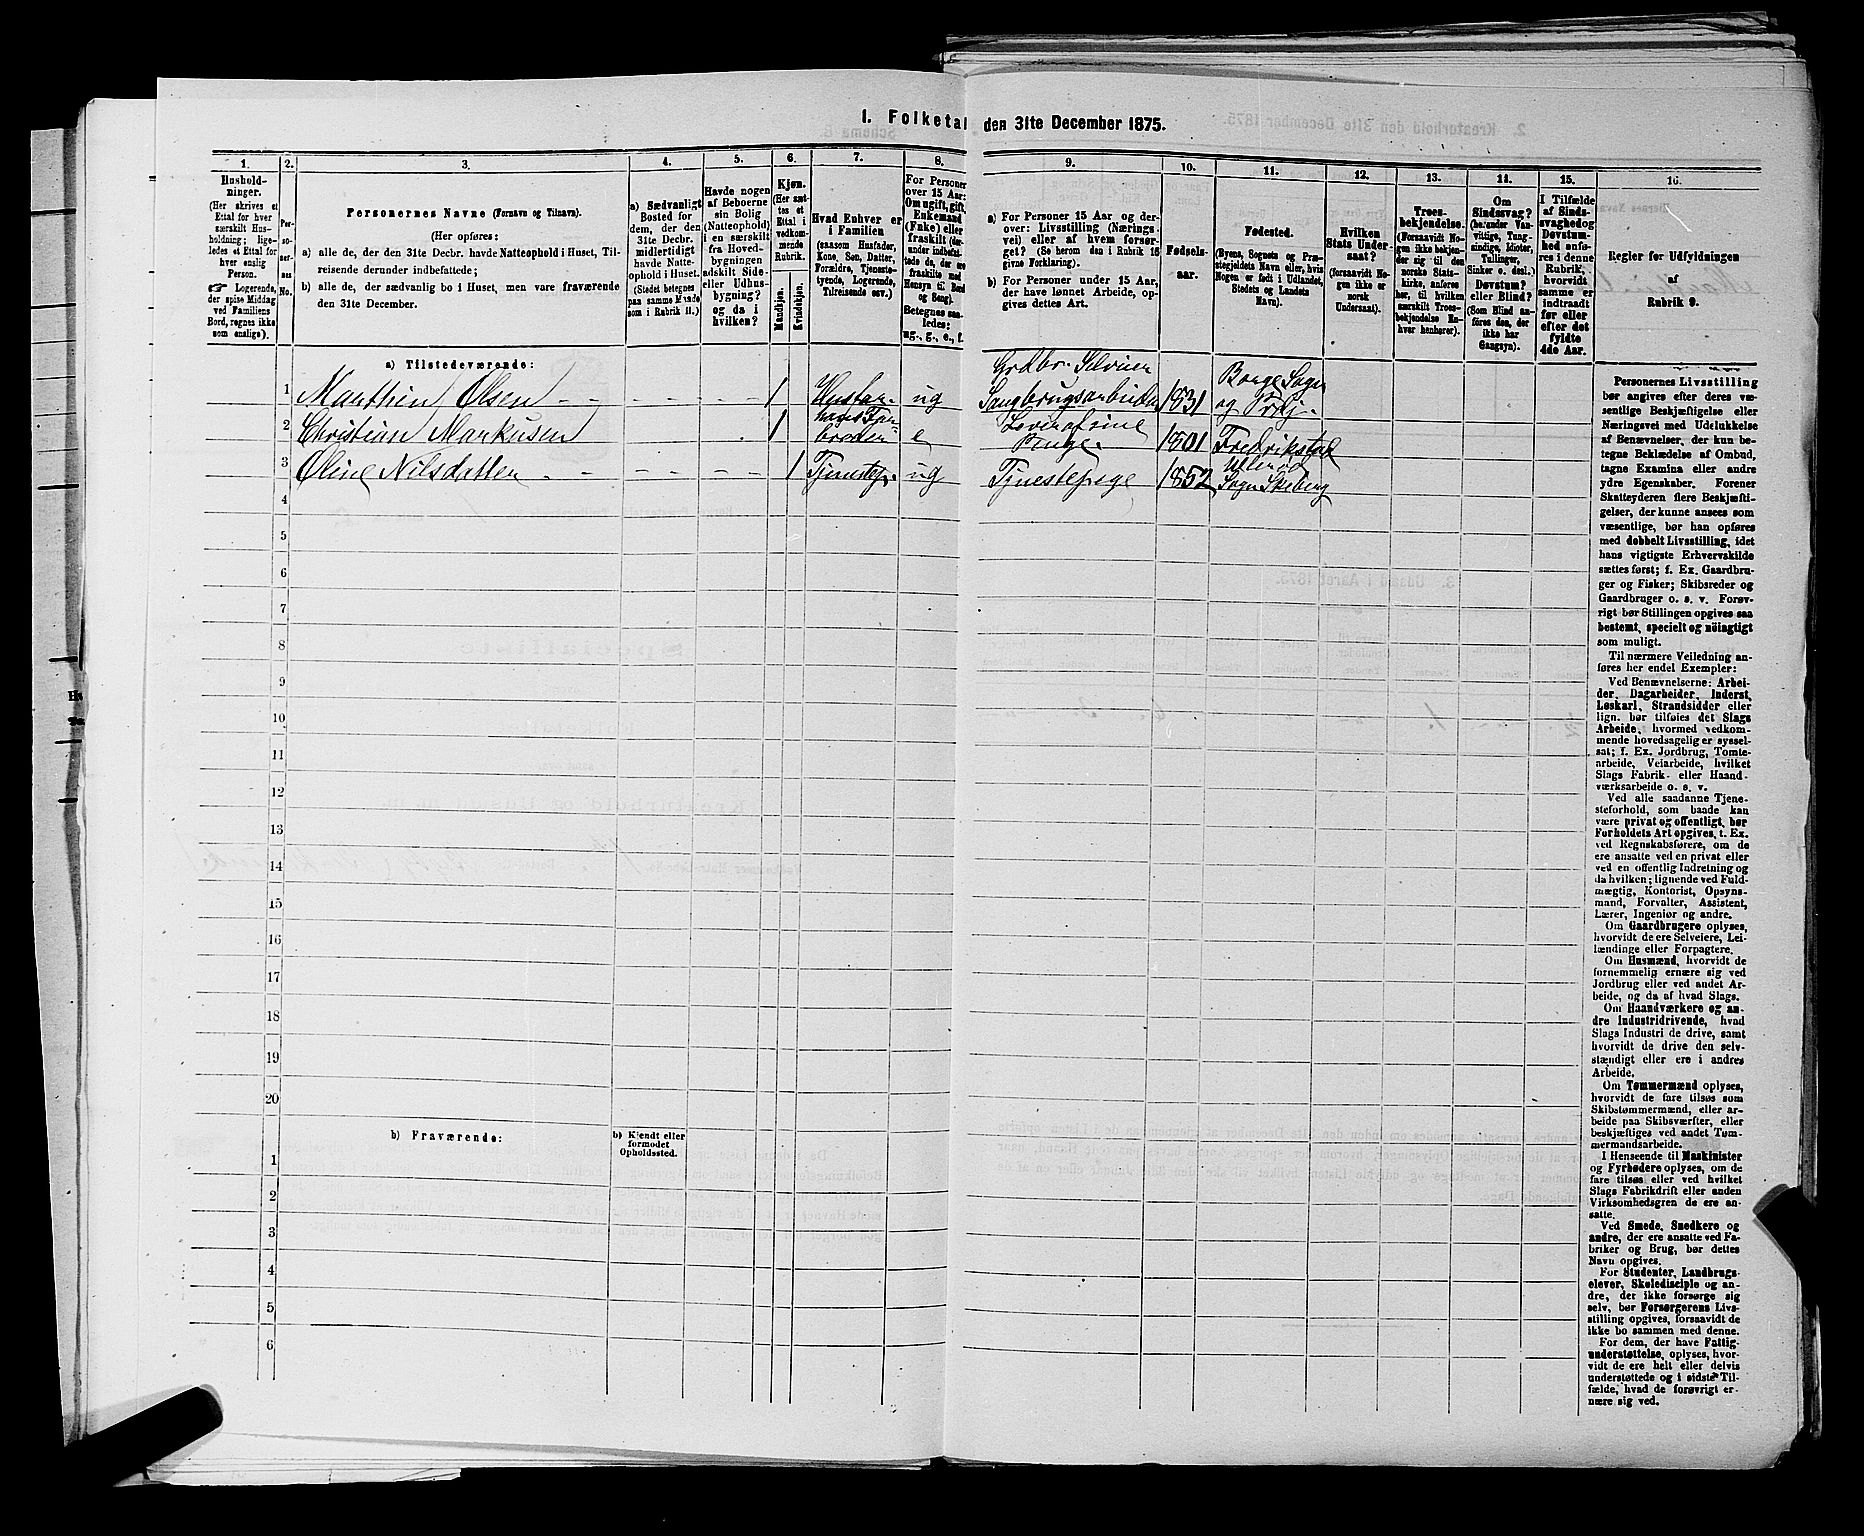 1. Folketal den 31te December 1875.
1. 2. 3. 4. 5. 6. 7. 8. 9. 10. 11. 12. 13. 14. 15. 16.
Hushold-
ninger.
(Her skrives et
Ettal for hver
særskilt Hus-
holdning; lige-
ledes et Ettal for
hver enslig
Person.
☞ Logerende,
der spise Middag
ved Familiens
Bord, regnes ikke
som enslige).
Per-
so-
ner-
nes
No.
Personernes Navne (Fornavn og Tilnavn).
(Her opføres:
a) alle de, der den 31te Decbr. havde Natteophold i Huset, Til-
reisende derunder indbefattede;
b) alle de, der sædvanlig bo i Huset, men vare fraværende
den 31te December.
a) Sædvanligt
Bosted for
dem, der den
31te Decbr.
midlertidigt
havde Natte-
ophold i Huset.
(Stedet betegnes
paa samme Maade
som i Rubrik 11.)
Havde nogen
af Beboerne
sin Bolig
(Natteophold)
i en særskilt
fra Hoved-
bygningen
adskilt Side-
eller Udhus-
bygning?
og da i
hvilken?
Kjøn.
(Her sæt-
tes et
Ettal i
vedkom-
mende
Rubrik.
Mandkjøn.
Kvindekjøn.
Hvad Enhver er
i Familien
(saasom Husfader,
Kone, Søn, Datter,
Forældre, Tjeneste-
tyende, Logerende,
Tilreisende osv.)
For Personer
over 15 Aar:
Om ugift, gift,
Enkemand
(Enke) eller
fraskilt (der-
under indbefat-
tede de, der ere
fraskilte med
Hensyn til Bord
og Seng).
Betegnes saa-
ledes:
ug., g., e., f.
a) For Personer 15 Aar og der-
over: Livsstilling (Nærings-
vei) eller af hvem forsør-
get? (Se herom den i Rubrik 16
givne Forklaring).
b) For Personer under 15 Aar,
der have lønnet Arbeide, op-
gives dettes Art.
Fødsels-
aar.
Fødested.
(Byens, Sognets og Præ-
stegjeldets Navn eller, hvis
Nogen er født i Udlandet,
Stedets og Landets
Navn).
Hvilken
Stats Under-
saat?
(forsaavidt No-
gen ikke er
norsk
Undersaat).
Troes-
bekjendelse.
(Forsaavidt No-
gen ikke bekjen-
der sig til den
norske Stats-
kirke, anføres
her, til hvilken
særskilt Troes-
bekjendelse En-
hver henhører).
Om
Sindssvag?
(herunder Van-
vittige, Tung-
sindige, Idioter,
Tullinger,
Sinker o. desl.)
Døvstum?
eller Blind?
(Som Blind an-
føres den, der
ikke har
Gangsyn).
I Tilfælde
af Sinds-
svaghed og
Døvstum-
hed anfø-
res i denne
Rubrik,
hvorvidt
samme er
indtraadt
før eller
efter det
fyldte
4de Aar.
Regler for Udfyldningen
af
Rubrik 9.
a) Tilstedeværende:
1 Marthin Olsen 1 Husfar ug Grdbr. Selveier
Saugbrugsarbeider 1831 Borge Sogn
og Prgj.
2 Christian Markusen 1 hans Far-
broder e Lever af sine
Penge 1801 Fredrikstad
3 Oline Nilsdatter 1 Tjenestep. ug Tjenestepige 1852 Ullerød
Sogn Skeberg
4
5
6
7
8
9
10
11
12
13
14
15
16
17
18
19
20
b) Fraværende:
b) Kjendt eller
formodet
Opholdssted.
1
2
3
4
5
6
Personernes Livsstilling
bør angives efter deres væ-
sentlige Beskjæftigelse eller
Næringsvei med Udelukkelse
af Benævnelser, der kun be-
tegne Beklædelse af Ombud,
tagne Examina eller andre
ydre Egenskaber. Forener
Skatteyderen flere Beskjæfti-
gelser, der kunne ansees som
væsentlige, bør han opføres
med dobbelt Livsstilling, idet
hans vigtigste Erhvervskilde
sættes først; f. Ex. Gaardbru-
ger og Fisker; Skibsreder og
Gaardbruger o. s. v. Forøv-
rigt bør Stillingen opgives saa
bestemt, specielt og nöiagtigt
som muligt.
Til nærmere Veiledning an-
føres her endel Exempler:
Ved Benævnelserne: Arbei-
der, Dagarbeider, Inderst,
Løskarl, Strandsidder eller
lign. bør tilføies det Slags
Arbeide, hvormed vedkom-
mende hovedsagelig er syssel-
sat; f. Ex. Jordbrug, Tomte-
arbeide, Veiarbeide, hvilket
Slags Fabrik- eller Haand-
værksarbeide o. s. v.
Ved alle saadanne Tjene-
steforhold, som baade kan
være privat og offentligt, bør
Forholdets Art opgives, t. Ex.
ved Regnskabsførere, om de
ere ansatte ved en privat eller
ved en offentlig Indretning og
da hvilken; lignende ved Fuld-
mægtig, Kontorist, Opsyns-
mand, Forvalter, Assistent,
Lærer, Ingeniør og andre.
Om Gaardbrugere oplyses,
hvorvidt de ere Selveiere, Lei-
lændinge eller Forpagtere.
Om Husmænd, hvorvidt de
fornemmelig ernære sig ved
Jordbrug eller ved andet Ar-
beide, og da af hvad Slags.
Om Haandværkere og an-
dre Industridrivende, hvad
Slags Industri de drive, samt
hvorvidt de drive den selv-
stændigt eller ere i andres
Arbeide.
Om Tømmermænd oplyses,
hvorvidt de fare tilsøs som
Skibstømmermænd, eller ar-
beide paa Skibsværfter, eller
beskjæftiges ved andet Tøm-
mermandsarbeide.
I Henseende til Maskinister
og Fyrbødere oplyses, om de
fare tilsøs eller ved hvilket
Slags Fabrikdrift eller anden
Virksomhedsgren de ere an-
satte.
Ved Smede, Snedkere og
andre, der ere ansatte ved Fa-
briker og Brug, bør dettes
Navn opgives.
For Studenter, Landbrugs-
elever, Skoledisciple og an-
dre, der ikke forsørge sig
selv, bør Forsørgerens Livs-
stilling opgives, forsaavidt de
ikke bo sammen med denne.
For dem, der have Fattig-
understøttelse, oplyses, hvor-
vidt de ere helt eller delvis
understøttede og i sidste Til-
fælde, hvad de forøvrigt er-
nære sig ved.